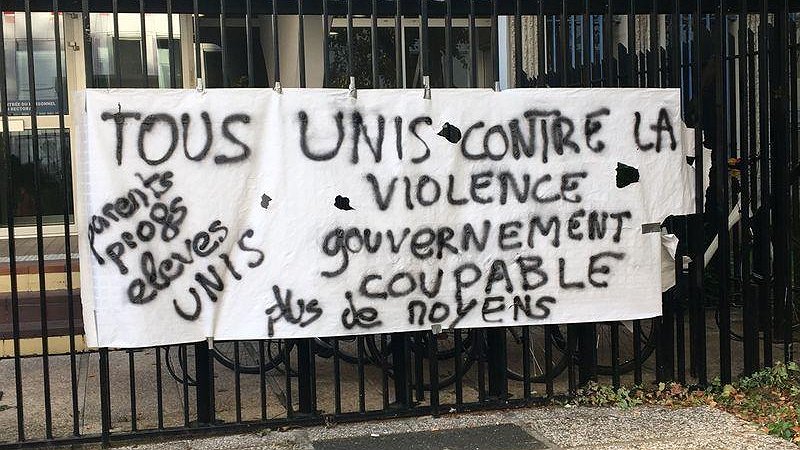 TOUS UNIS CONTRE LA
VIOLENCE
gouvernement
COUPABLE
plus de moyens
parents
progs
eleves
UNIS